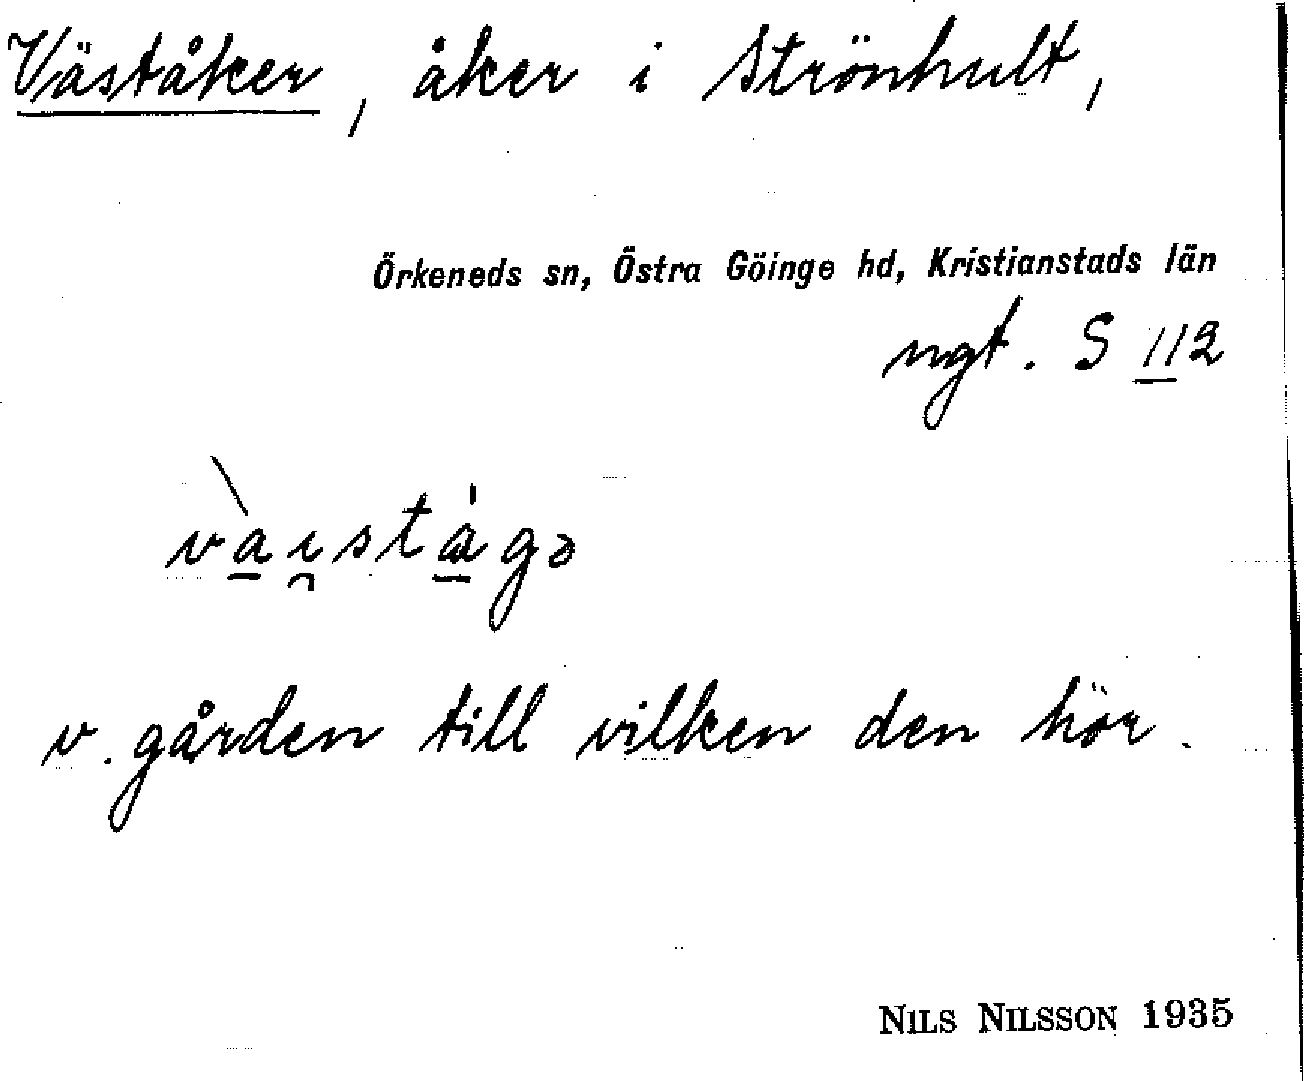 Västäker, åker i Strönhult,
Örkeneds sn, Östra Göinge hd, Kristianstads län
ngt. S 112
vàı̯stågə
v. gården till vilken den hör.
NILS NILSSON 1935